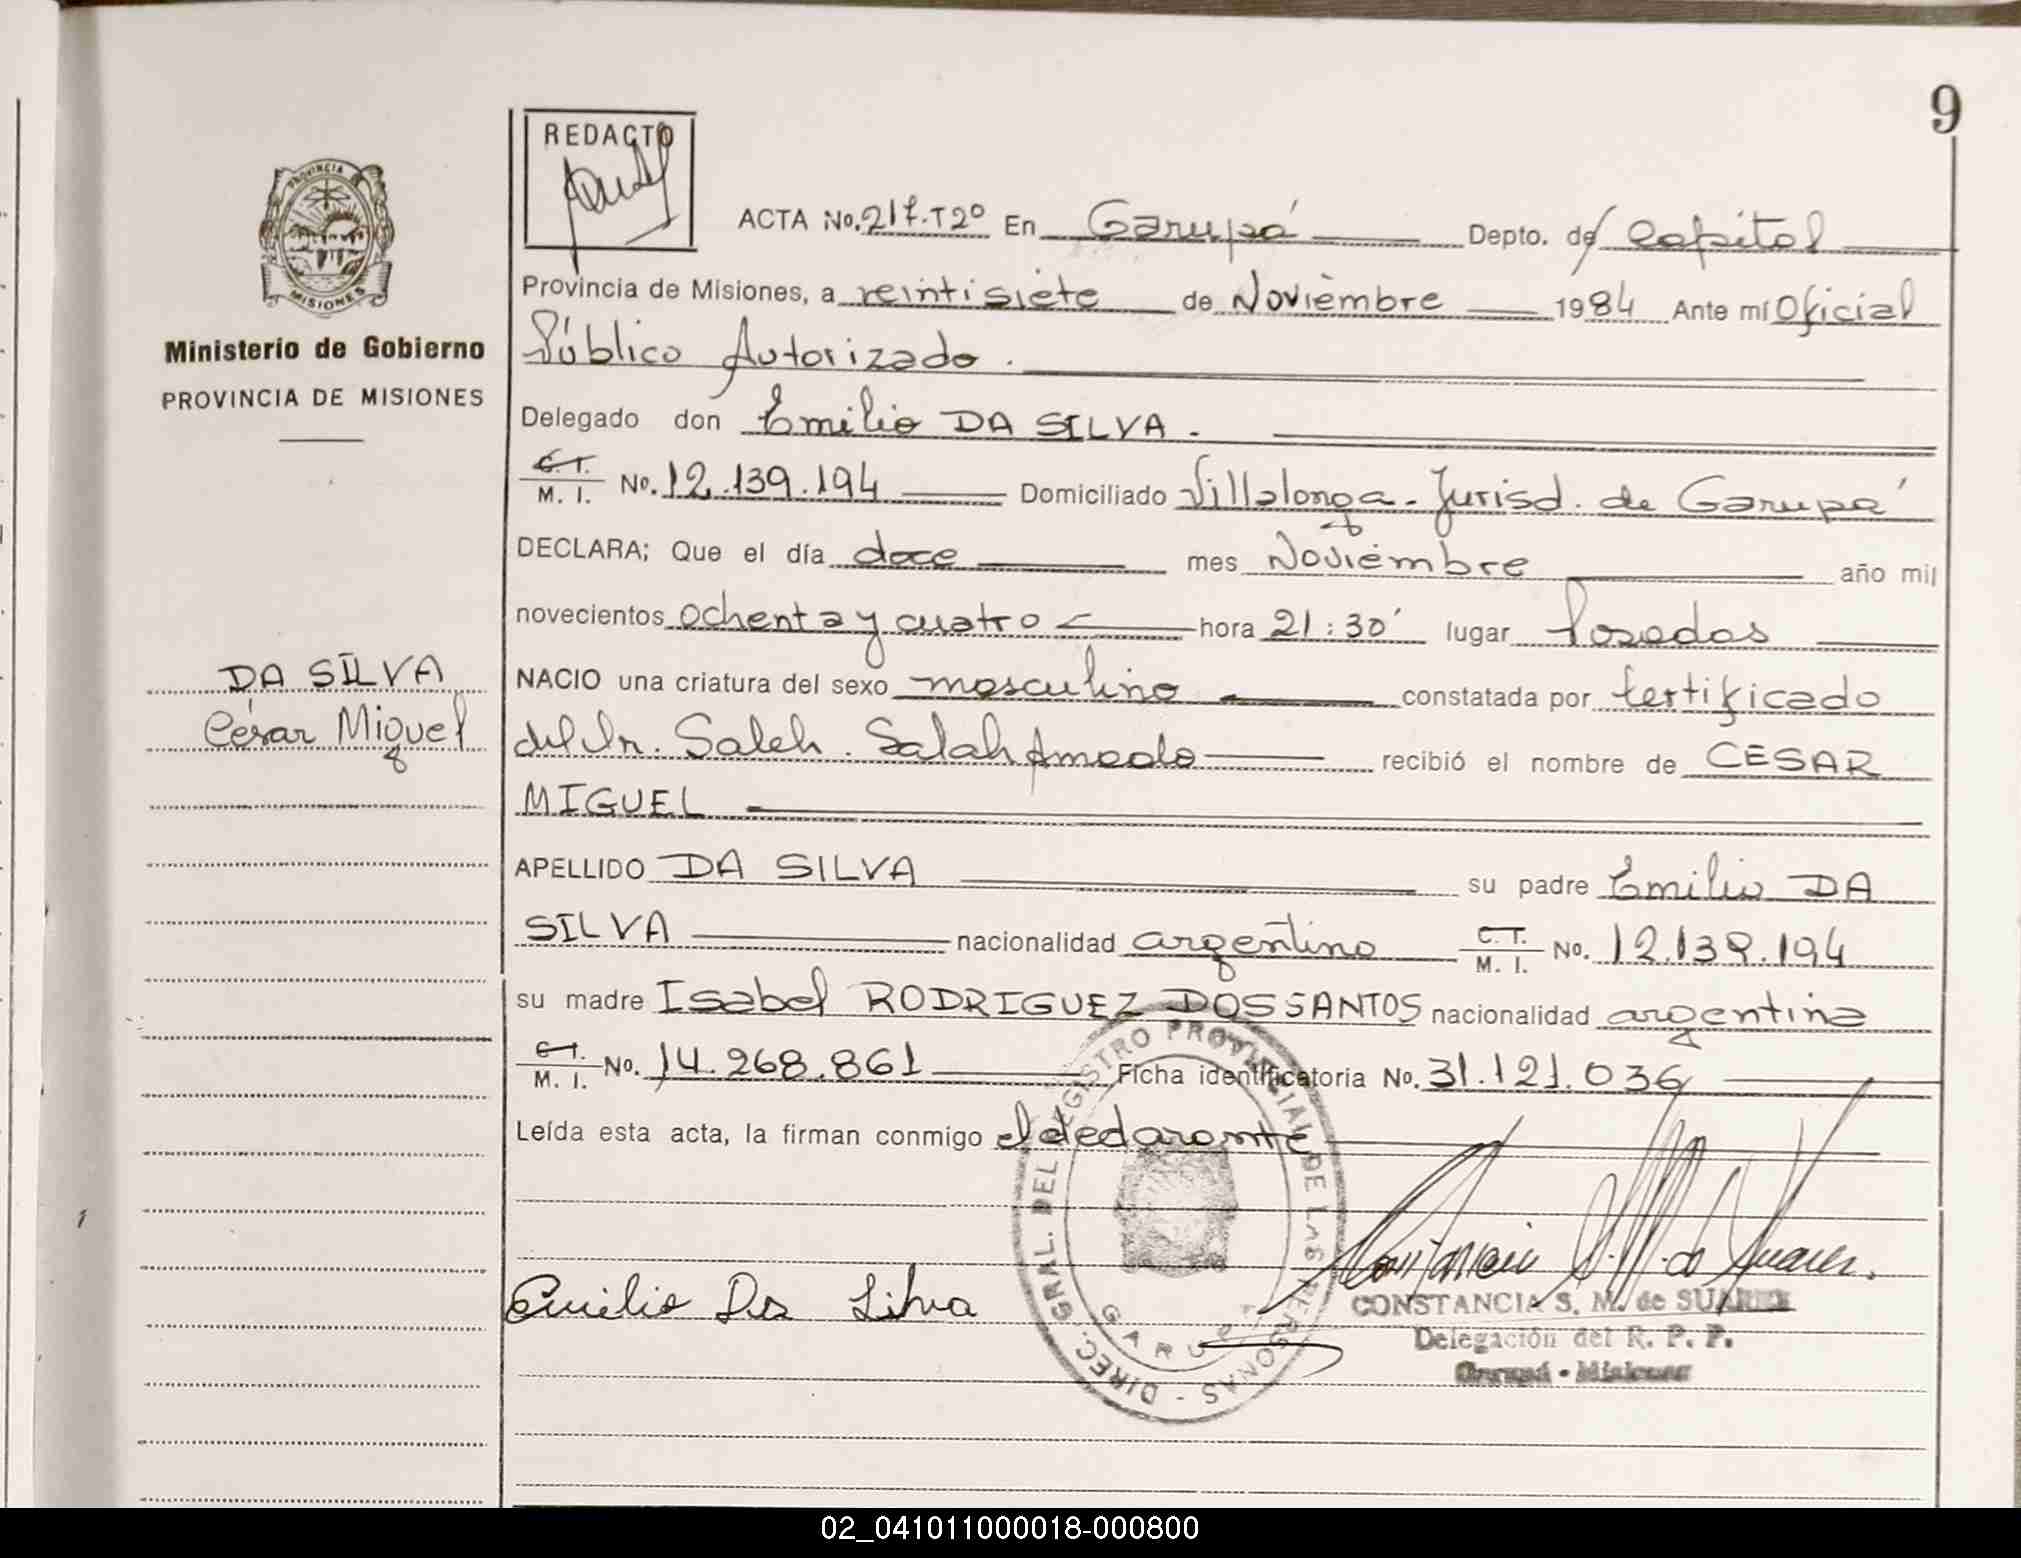 9
REDACTO
ACTA No. 217.T2º En Garupá Depto. de Capital
Provincia de Misiones, a veintisiete de Noviembre 1984 Ante mí Oficial
Público Autorizado.
Delegado don Emilio DA SILVA.
C.T. M. I. No. 12.139.194 Domiciliado Villalonga - Jurisd. de Garupá
DECLARA; Que el día doce mes Noviembre año mil
novecientos ochenta y cuatro hora 21:30' lugar Posadas
NACIO una criatura del sexo masculino constatada por Certificado
del Dr. Saleh. Salah Amado recibió el nombre de CESAR
MIGUEL
APELLIDO DA SILVA su padre Emilio DA
SILVA nacionalidad argentino C.T. M. I. No. 12.139.194
su madre Isabel RODRIGUEZ DOS SANTOS nacionalidad argentina
C.T. M. I. No. 14.268.861 Ficha identificatoria No. 31.121.036
Leída esta acta, la firman conmigo el declarante
Emilio Da Silva
CONSTANCIA S. M. de SUAREZ
Delegación del R. P. P.
Garupá - Misiones
DIREC. GRAL. DEL REGISTRO PROVINCIAL DE LAS PERSONAS -
GARUPA
PROVINCIA
MISIONES
Ministerio de Gobierno
PROVINCIA DE MISIONES
DA SILVA
César Miguel
02_041011000018-000800